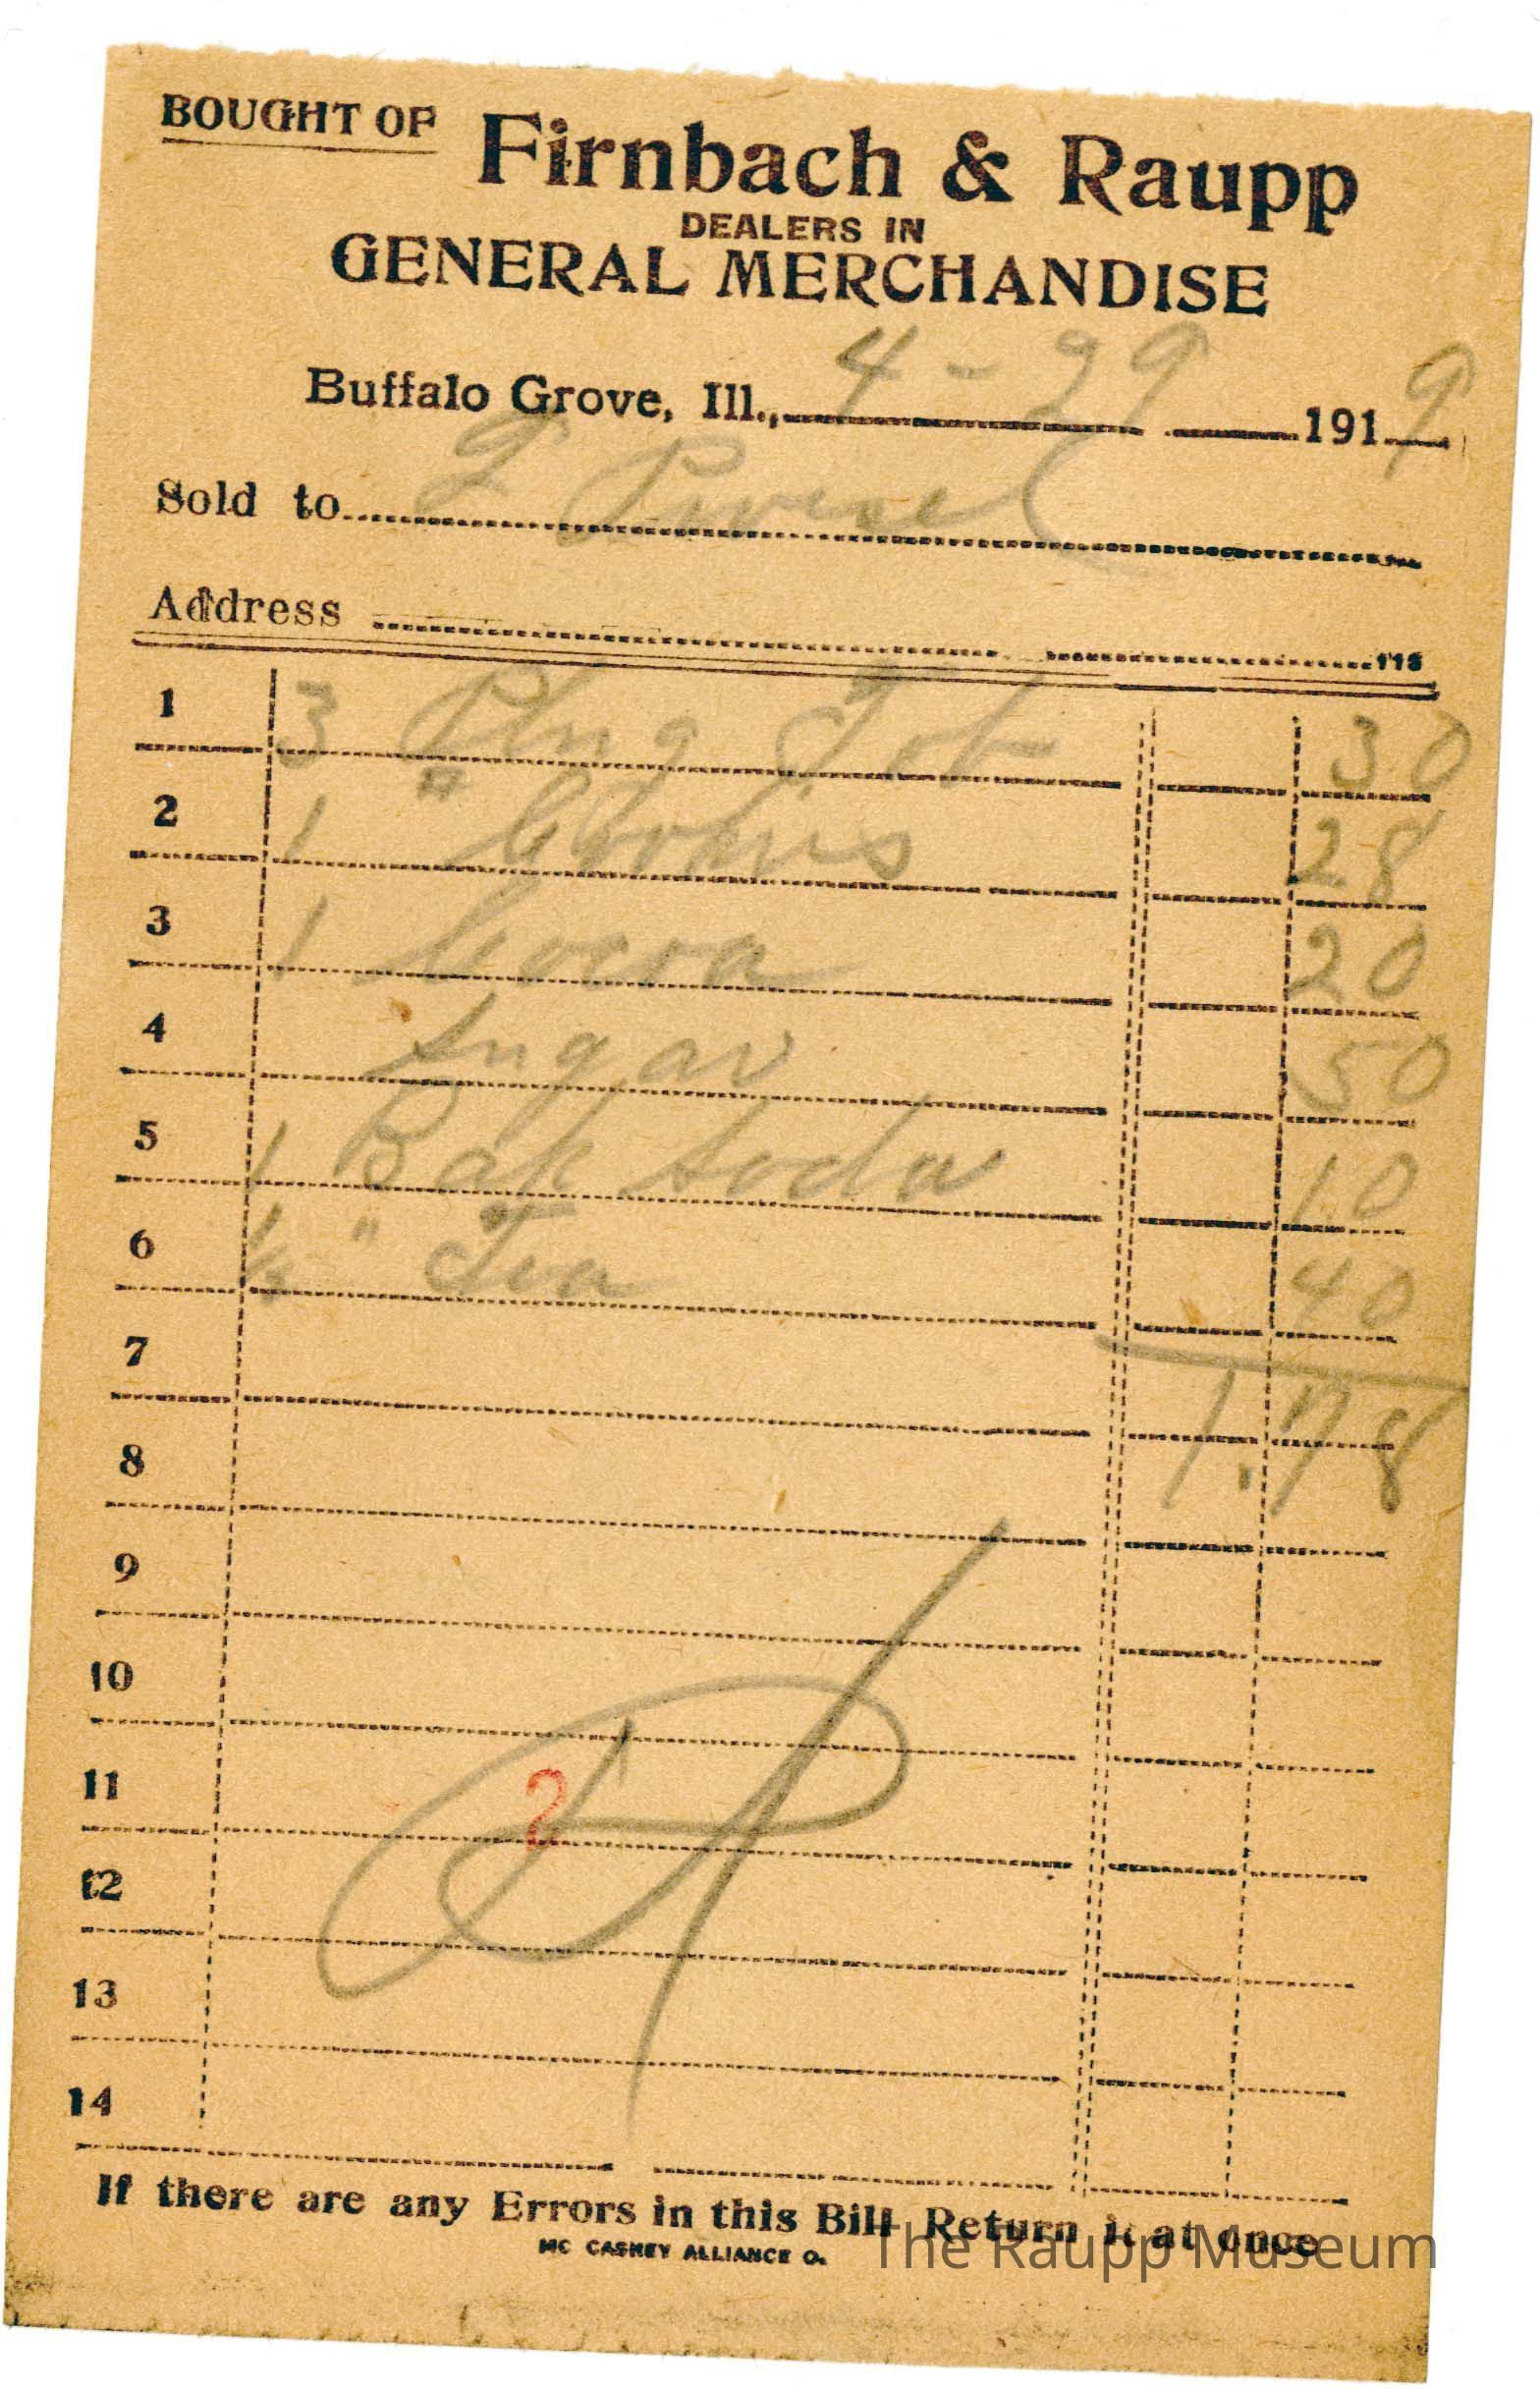 BOUGHT OF Firnbach & Raupp
DEALERS IN
GENERAL MERCHANDISE
Buffalo Grove, Ill., 4-29 1919
Sold to
Address 115
1 3 Plug Tob 30
2 1 " 28
3 1 Cocoa 20
4 Sugar 50
5 1 Bak Soda 10
6 1/2 " Tea 40
7 1.78
8
9
10
11 2
12
13
14
If there are any Errors in this Bill Return it at once
MC CASKEY ALLIANCE O.
The Raupp Museum